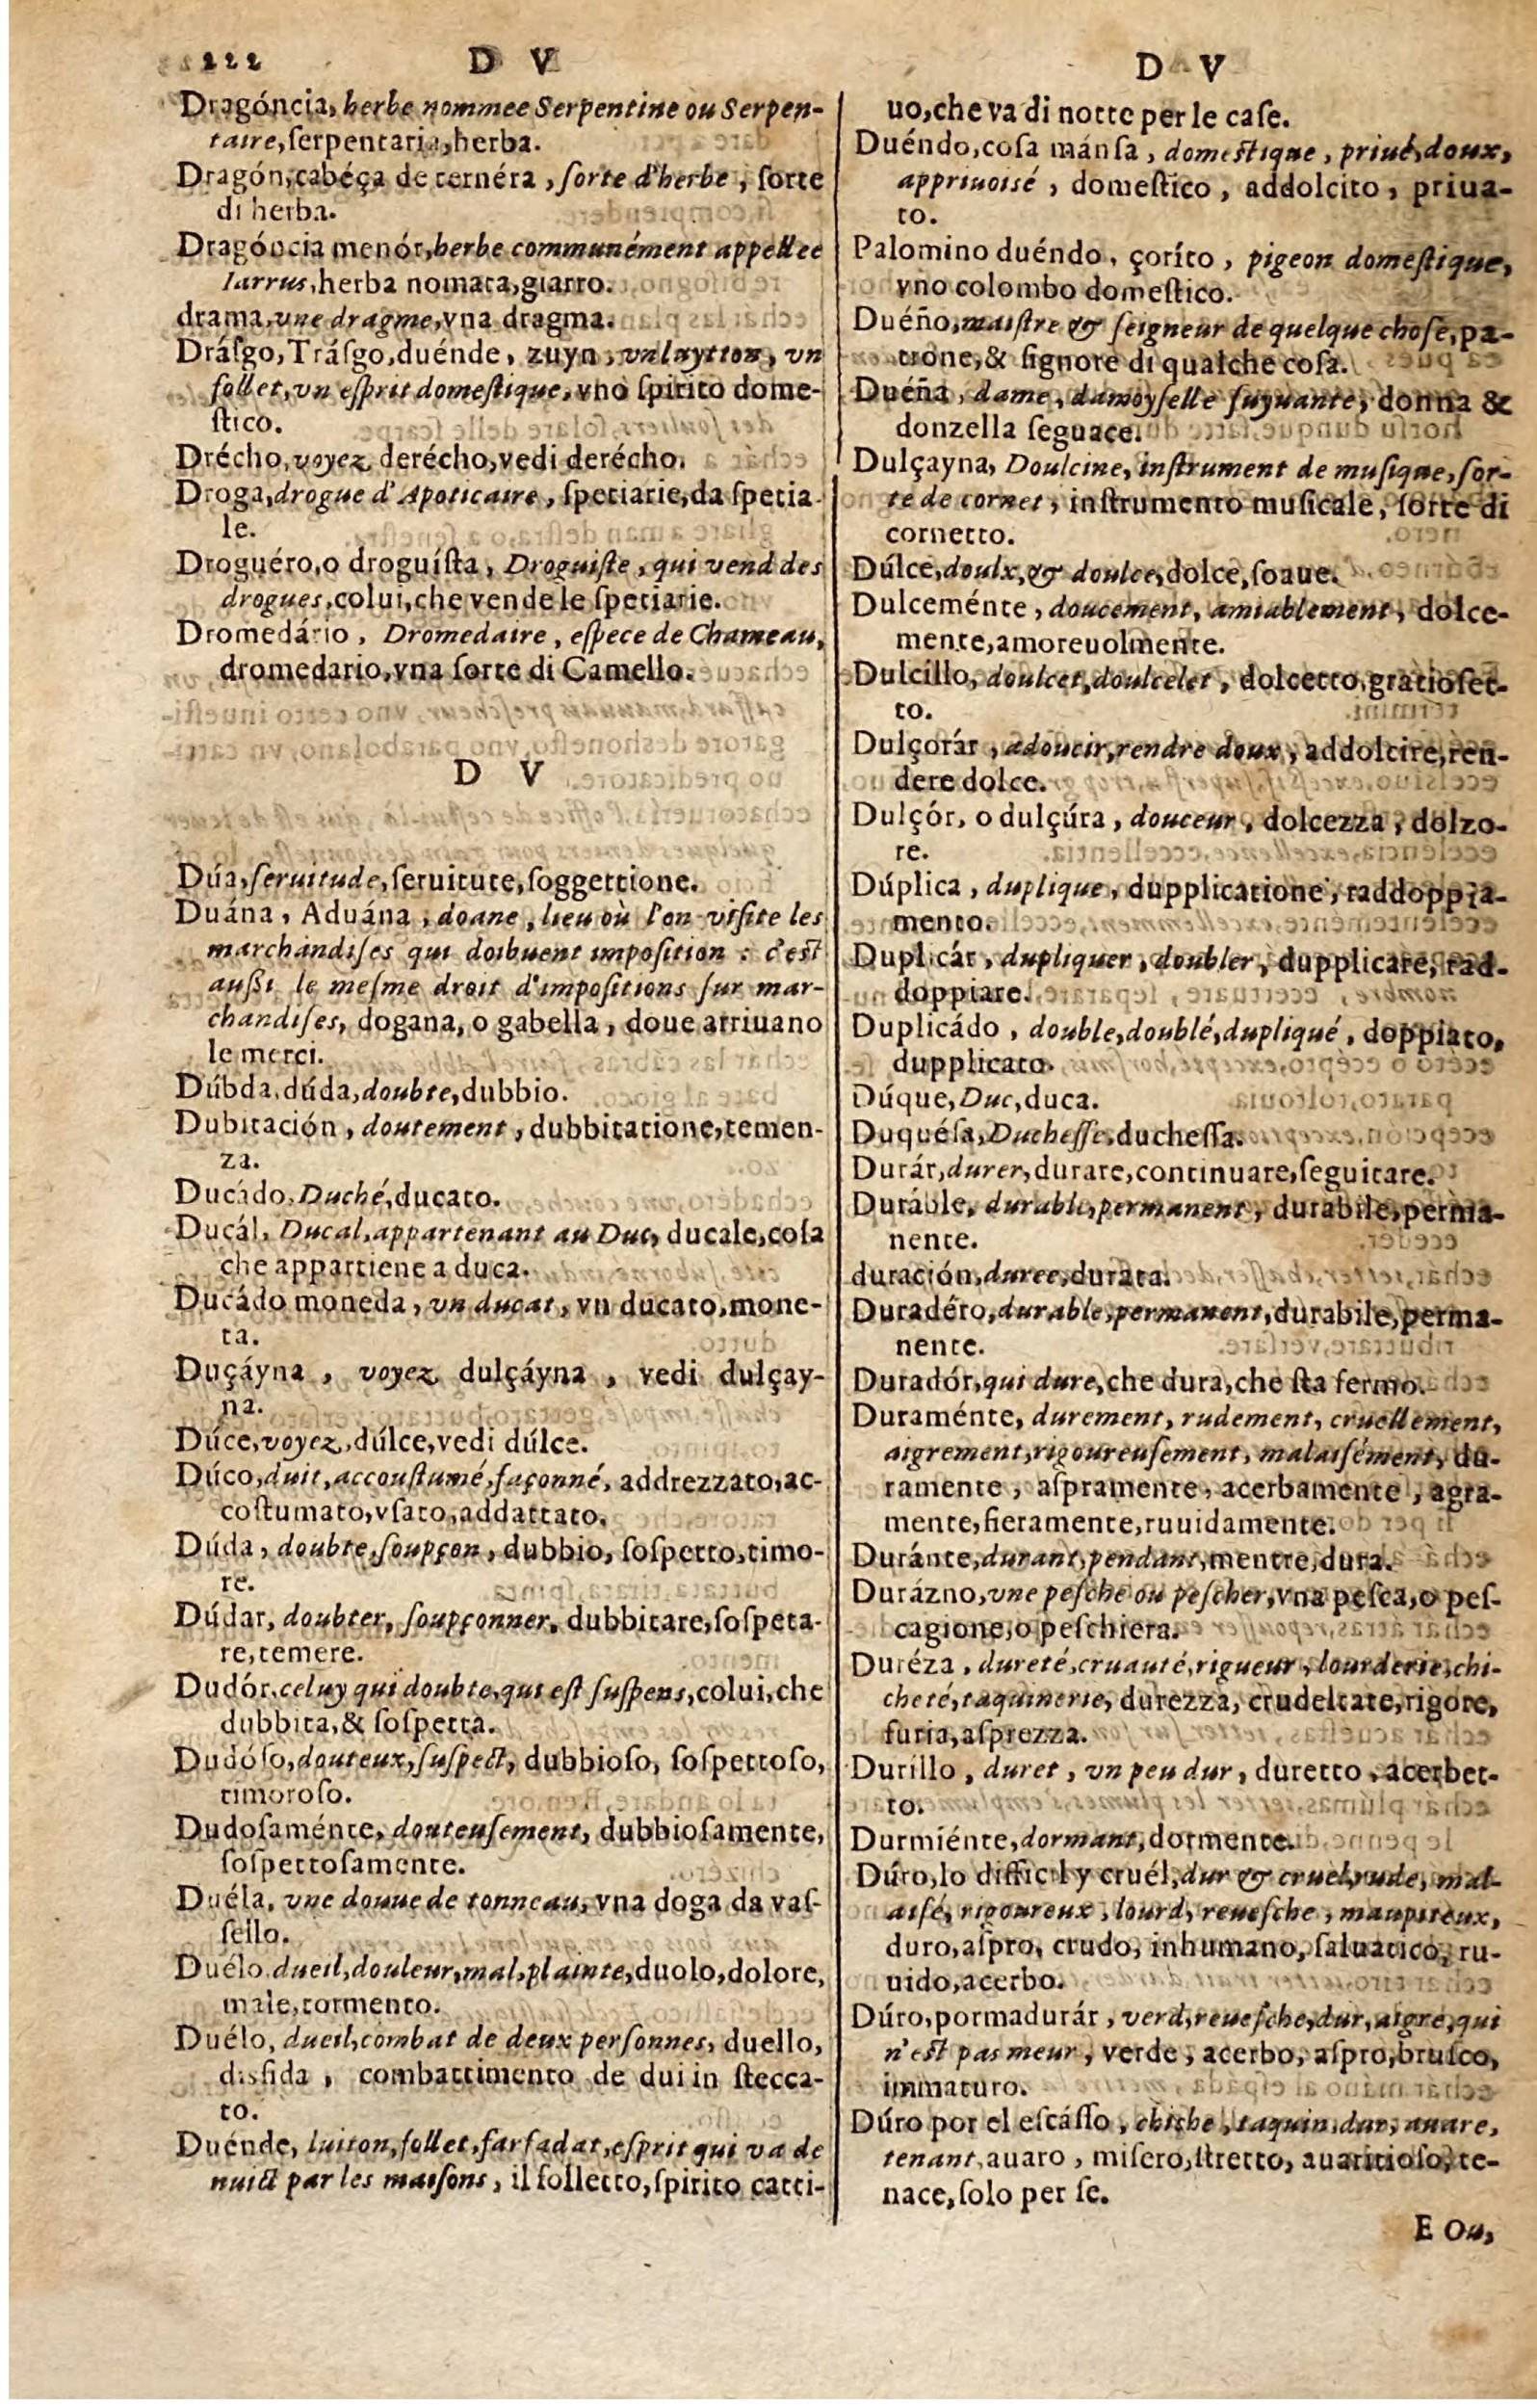 222 D V
Dragóncia, herbe nommee Serpentine ou Serpen-
taire, ſerpentaria, herba.
Dragón, cabéça de ternéra, ſorte d'herbe, ſorte
di herba.
Dragóncia menór, herbe communément appellee
Iarrus, herba nomata, giarro.
drama, vne dragme, vna dragma.
Dráſgo, Tráſgo, duénde, zuyn, vn luytton, vn
follet, vn eſprit domeſtique, vno ſpirito dome-
ſtico.
Drécho, voyez derécho, vedi derécho.
Droga, drogue d'Apoticaire, ſpetiarie, da ſpetia-
le.
Droguéro, o droguíſta, Droguiſte, qui vend des
drogues, colui, che vende le ſpetiarie.
Dromedário, Dromedaire, eſpece de Chameau,
dromedario, vna ſorte di Camello.
D V
Dúa, ſeruitude, ſeruitute, ſoggettione.
Duána, Aduána, doane, lieu où l'on viſite les
marchandiſes qui doibuent impoſition : c'eſt
auſsi le meſme droit d'impoſitions ſur mar-
chandiſes, dogana, o gabella, doue arriuano
le merci.
Dúbda, dúda, doubte, dubbio.
Dubitación, doutement, dubbitatione, temen-
za.
Ducádo, Duché, ducato.
Ducál, Ducal, appartenant au Duc, ducale, coſa
che appartiene a duca.
Ducádo moneda, vn ducat, vn ducato, mone-
ta.
Duçáyna, voyez dulçáyna, vedi dulçay-
na.
Dúce, voyez, dúlce, vedi dúlce.
Dúco, duit, accouſtumé, façonné, addrezzato, ac-
coſtumato, vſato, addattato.
Dúda, doubte, ſoupçon, dubbio, ſoſpetto, timo-
re.
Dúdar, doubter, ſoupçonner, dubbitare, ſoſpeta-
re, temere.
Dudór, celuy qui doubte, qui eſt ſuſpens, colui, che
dubbita, & ſoſpetta.
Dudóſo, douteux, ſuſpect, dubbioſo, ſoſpettoſo,
timoroſo.
Dudoſaménte, douteuſement, dubbioſamente,
ſoſpettoſamente.
Duéla, vne douue de tonneau, vna doga da vaſ-
ſello.
Duélo, dueil, douleur, mal, plainte, duolo, dolore,
male, tormento.
Duélo, dueil, combat de deux perſonnes, duello,
disfida, combattimento de dui in ſtecca-
to.
Duénde, luiton, follet, farfadat, eſprit qui va de
nuict par les maiſons, il folletto, ſpirito catti-
D V
uo, che va di notte per le caſe.
Duéndo, coſa mánſa, domeſtique, priué, doux,
appriuoiſé, domeſtico, addolcito, priua-
to.
Palomino duéndo, çoríto, pigeon domeſtique,
vno colombo domeſtico.
Duéño, maiſtre & ſeigneur de quelque choſe, pa-
trone, & ſignore di qualche coſa.
Duéña, dame, damoyſelle ſuyuante, donna &
donzella ſeguace.
Dulçayna, Doulcine, inſtrument de muſique, ſor-
te de cornet, inſtrumento muſicale, ſorte di
cornetto.
Dúlce, doulx, & doulce, dolce, ſoaue.
Dulceménte, doucement, amiablement, dolce-
mente, amoreuolmente.
Dulcíllo, doulcet, doulcelet, dolcetto, gratioſet-
to.
Dulçorár, adoucir, rendre doux, addolcire, ren-
dere dolce.
Dulçór, o dulçúra, douceur, dolcezza, dolzo-
re.
Dúplica, duplique, dupplicatione, raddoppia-
mento.
Duplicár, dupliquer, doubler, dupplicare, rad-
doppiare.
Duplicádo, double, doublé, dupliqué, doppiato,
dupplicato.
Dúque, Duc, duca.
Duquéſa, Ducheſſe, ducheſſa.
Durár, durer, durare, continuare, ſeguitare.
Duráble, durable, permanent, durabile, perma-
nente.
duración, duree, durata.
Duradéro, durable, permanent, durabile, perma-
nente.
Duradór, qui dure, che dura, che ſta fermo.
Duraménte, durement, rudement, cruellement,
aigrement, rigoureuſement, malaiſément, du-
ramente, aſpramente, acerbamente, agra-
mente, fieramente, ruuidamente.
Duránte, durant, pendant, mentre, dura.
Durázno, vne peſche ou peſcher, vna peſca, o peſ-
cagione, o peſchiera.
Duréza, dureté, cruauté, rigueur, lourderie, chi-
cheté, taquinerie, durezza, crudeltate, rigore,
furia, aſprezza.
Durillo, duret, vn peu dur, duretto, acerbet-
to.
Durmiénte, dormant, dormente.
Dúro, lo difficil y cruél, dur & cruel, rude, mal-
aiſé, rigoureux, lourd, reueſche, maupiteux,
duro, aſpro, crudo, inhumano, ſaluatico, ru-
uido, acerbo.
Dúro, por madurár, verd, reueſche, dur, aigre, qui
n'eſt pas meur, verde, acerbo, aſpro, bruſco,
immaturo.
Dúro por el eſcáſſo, chiche, taquin, dur, auare,
tenant, auaro, miſero, ſtretto, auaritioſo, te-
nace, ſolo per ſe.
E Ou,